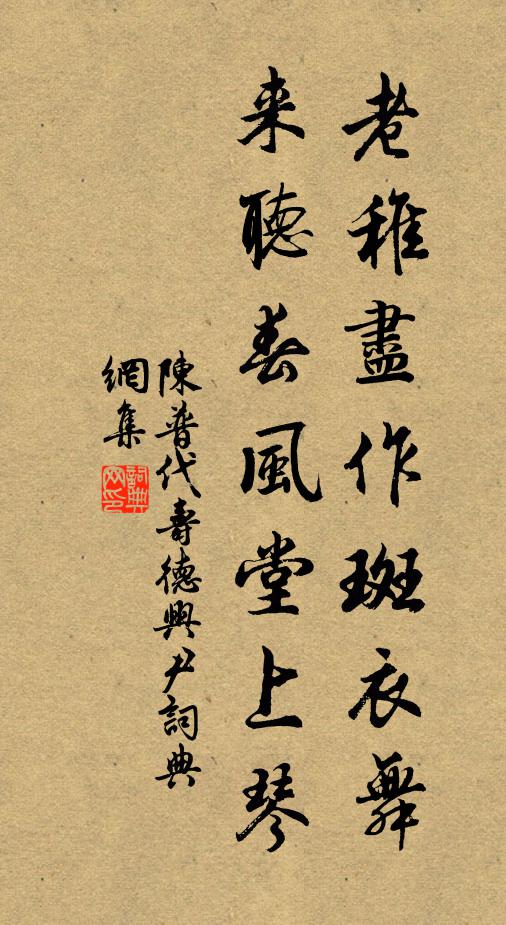 老稚盡作斑衣舞
来聽春風堂上琴
陳普代壽德興尹詞典
網集
詞典網印